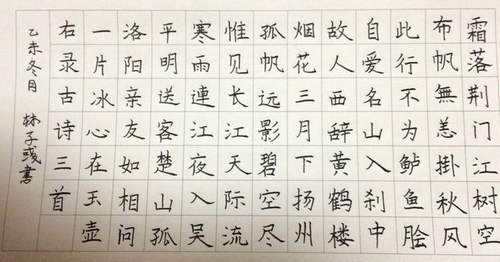 霜落荆门江树空
布帆無恙掛秋风
此行不为鲈鱼脍
自爱名山入刹中
故人西辞黄鹤楼
烟花三月下扬州
孤帆远影碧空尽
惟见长江天际流
寒雨連江夜入吴
平明送客楚山孤
洛阳亲友如相问
一片冰心在玉壶
右录古诗三首
乙未冬月 林子彧書